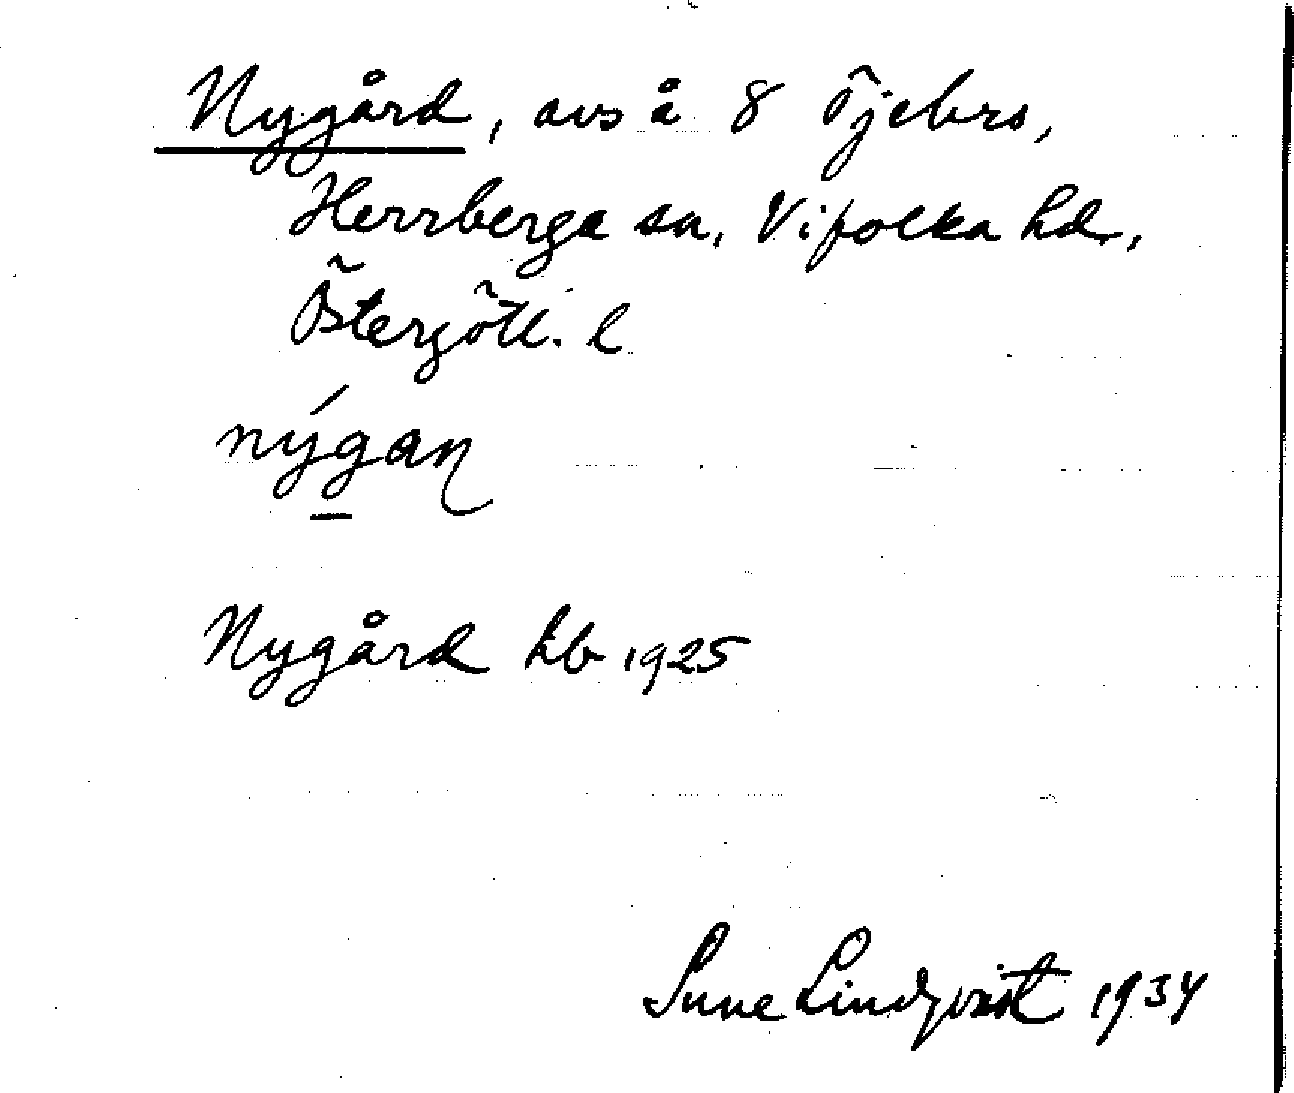 Nygård, avs å 8 Öjebro,
Herrberga sn, Vifolka hd,
Östergötl. l
nýgaɳ
Nygård hb 1925
Sune Lindqvist 1934